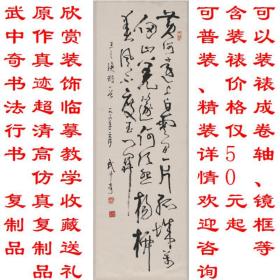 可以装裱成卷轴、镜框等
含装裱价格仅50元起
可普装、精装详情欢迎咨询
黄河遠上白雲一片孤城萬
仞山羌笛何須怨楊柳
春風不度玉門關
王之渙詩
武中奇
欣赏装饰临摹教学收藏送礼
原作真迹超清高仿真复制品
武中奇书法行书复制品